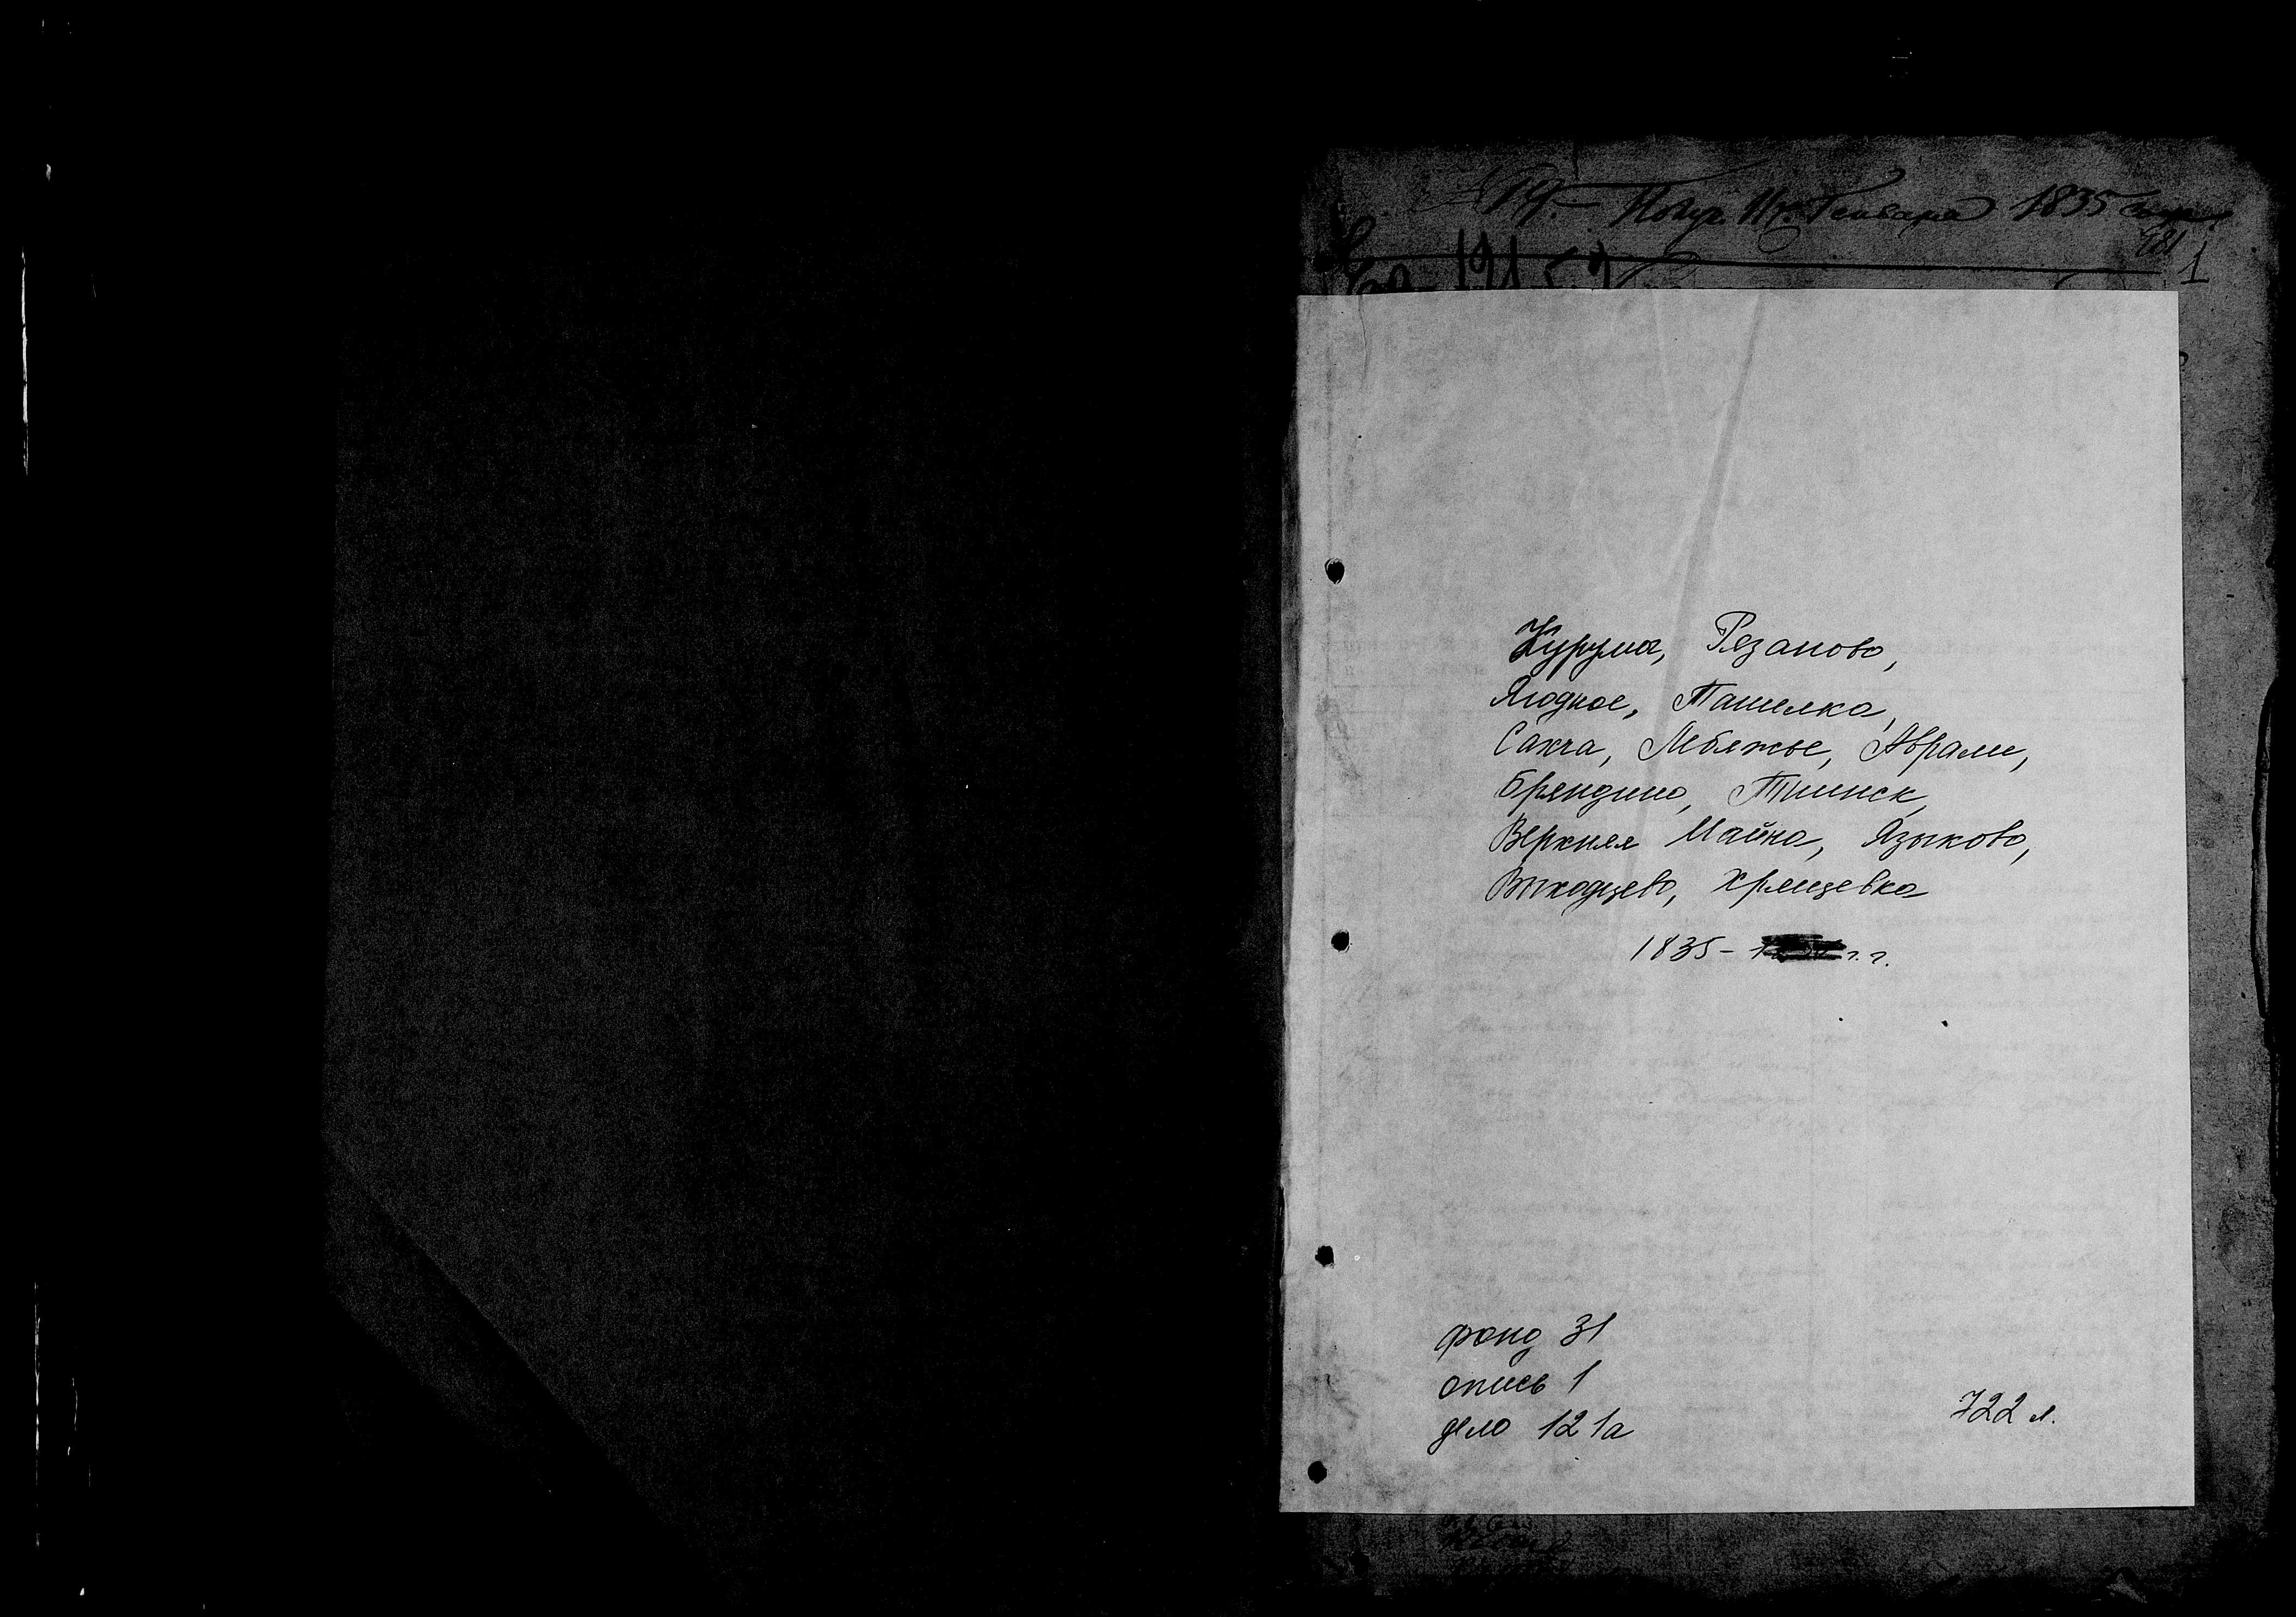 Генваря 1835
1
Курумы, Рязаново,
Ягодное, Ташелка,
Сахча, Лебяжье, Аврали,
Бряндино, Тиинск,
Верхняя Майна, Языково,
Выходцево, Хрящевка
1835 - г.г.
фонд 31
опись 1
дело 121а
722 л.